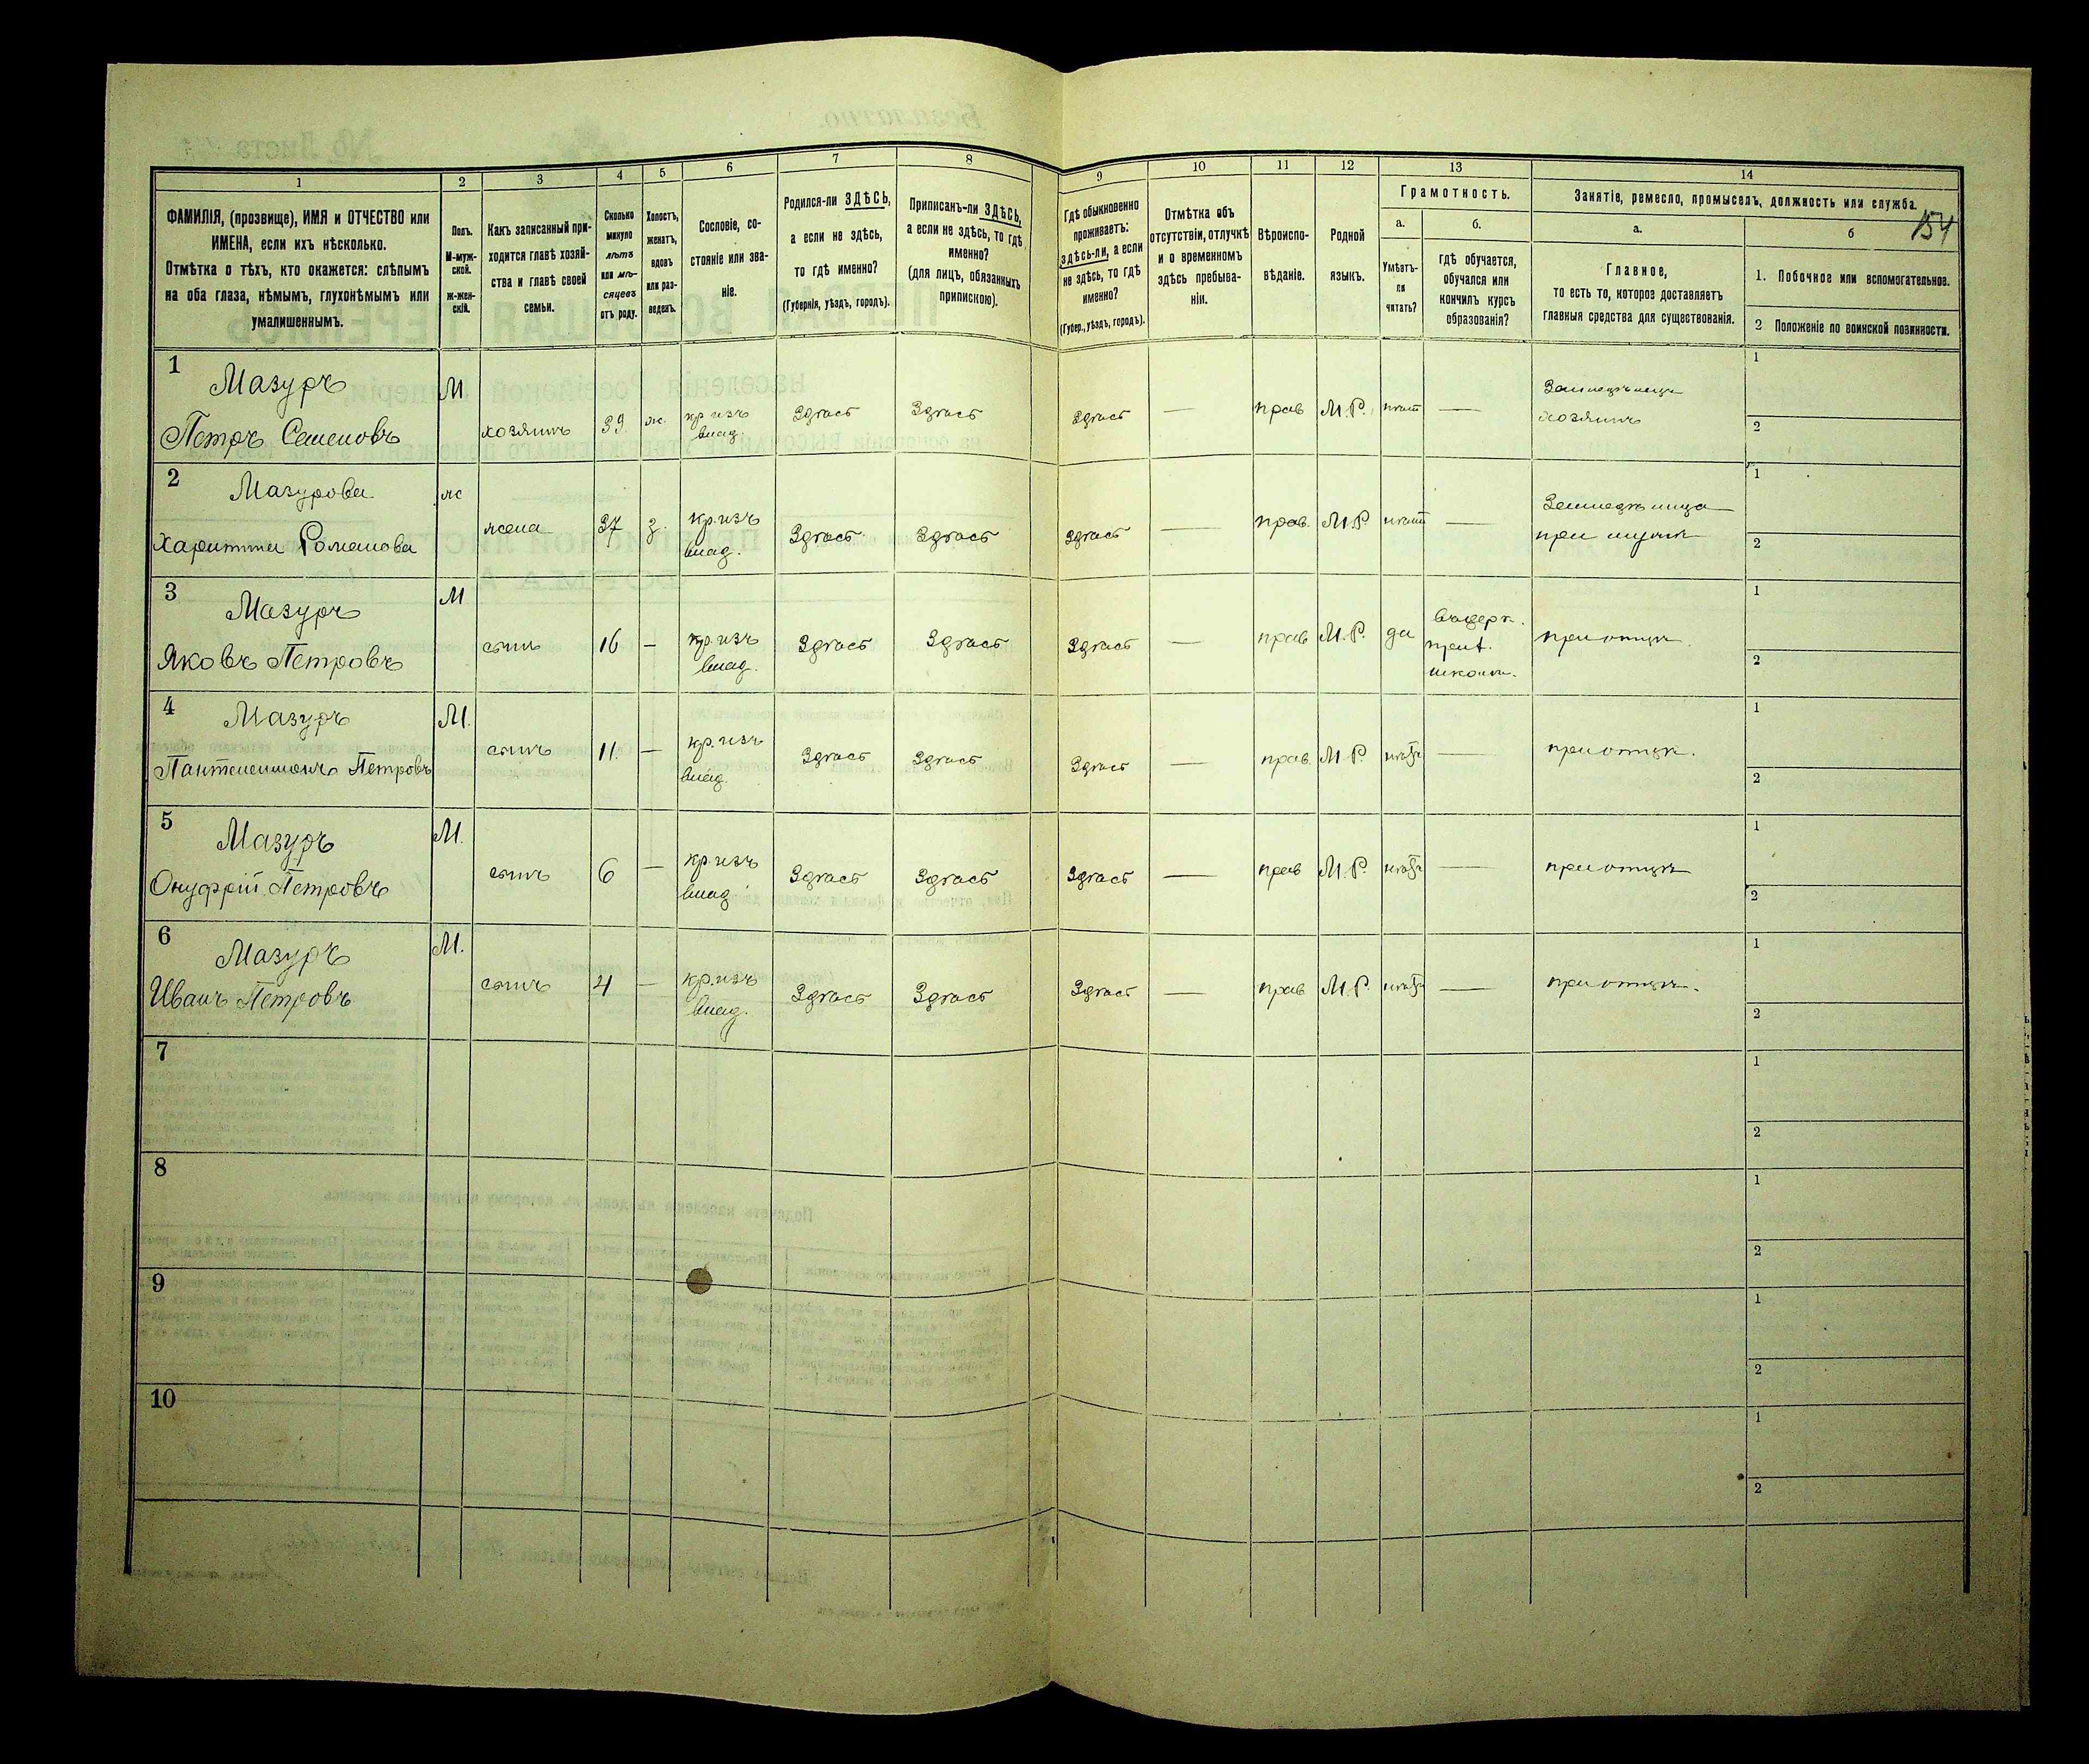 154
1
2
3
4
5
6
7
8
9
10
11
12
13
14
ФАМИЛІЯ, (прозвище), ИМЯ и ОТЧЕСТВО или
ИМЕНА, если ихъ нѣсколько.
Отмѣтка о тѣхъ, кто окажется: слѣпымъ
на оба глаза, нѣмымъ, глухонѣмымъ или
умалишеннымъ.
Полъ.
М-муж-
ской.
ж-жен-
скій.
Какъ записанный при-
ходится главѣ хозяй-
ства и главѣ своей
семьи.
Сколько
минуло
лѣтъ
или мѣ-
сяцевъ
отъ роду.
Холостъ,
женатъ,
вдовъ
или раз-
веденъ.
Сословіе, со-
стояніе или зва-
ніе.
Родился-ли ЗДѢСЬ,
а если не здѣсь,
то гдѣ именно?
(Губернія, уѣздъ, городъ).
Приписанъ-ли ЗДѢСЬ,
а если не здѣсь, то гдѣ
именно?
(для лицъ, обязанныхъ
припискою).
Гдѣ обыкновенно
проживаетъ:
здѣсь-ли, а если
не здѣсь, то гдѣ
именно?
(Губер., уѣздъ, городъ).
Отмѣтка объ
отсутствіи, отлучкѣ
и о временномъ
здѣсь пребыва-
ніи.
Вѣроиспо-
вѣданіе.
Родной
языкъ.
Грамотность.
а.
Умѣетъ-
ли
читать?
б.
гдѣ обучается,
обучался или
кончилъ курсъ
образованія?
Занятіе, ремесло, промыселъ, должность или служба.
а.
Главное,
то есть то, которое доставляетъ
главныя средства для существованія.
б
1. Побочное или вспомогательное.
2 Положеніе по воинской повинности.
1
Мазуръ
Петръ Семеновъ
М
хозяинъ
39.
ж.
кр. изъ
влад.
Здѣсь
Здѣсь
Здѣсь
—
прав
М.Р.
нѣтъ
—
хозяинъ
1
2
2
Мазурова
Романова
ж
жена
37
з.
кр. изъ
влад.
Здѣсь
Здѣсь
Здѣсь
—
прав.
М.Р.
нѣтъ
—
при мужѣ
1
2
3
Мазуръ
Яковъ Петровъ
М
сынъ
16
—
кр. изъ
влад.
Здѣсь
Здѣсь
Здѣсь
—
прав
М.Р.
да
при отцѣ.
1
2
4
Мазуръ
Пантелеимонъ Петровъ
М.
сынъ
11.
—
кр. изъ
влад.
Здѣсь
Здѣсь
Здѣсь
—
прав.
М.Р.
нѣтъ
—
при отцѣ.
1
2
5
Мазуръ
Онуфрій Петровъ
М.
сынъ
6
—
кр. изъ
влад.
Здѣсь
Здѣсь
Здѣсь
—
прав
М.Р.
нѣтъ
—
при отцѣ
1
2
6
Мазуръ
Иванъ Петровъ
М.
сынъ
4
—
кр. изъ
влад.
Здѣсь
Здѣсь
Здѣсь
—
прав
М.Р.
нѣтъ
—
при отцѣ.
1
2
7
1
2
8
1
2
9
1
2
10
1
2